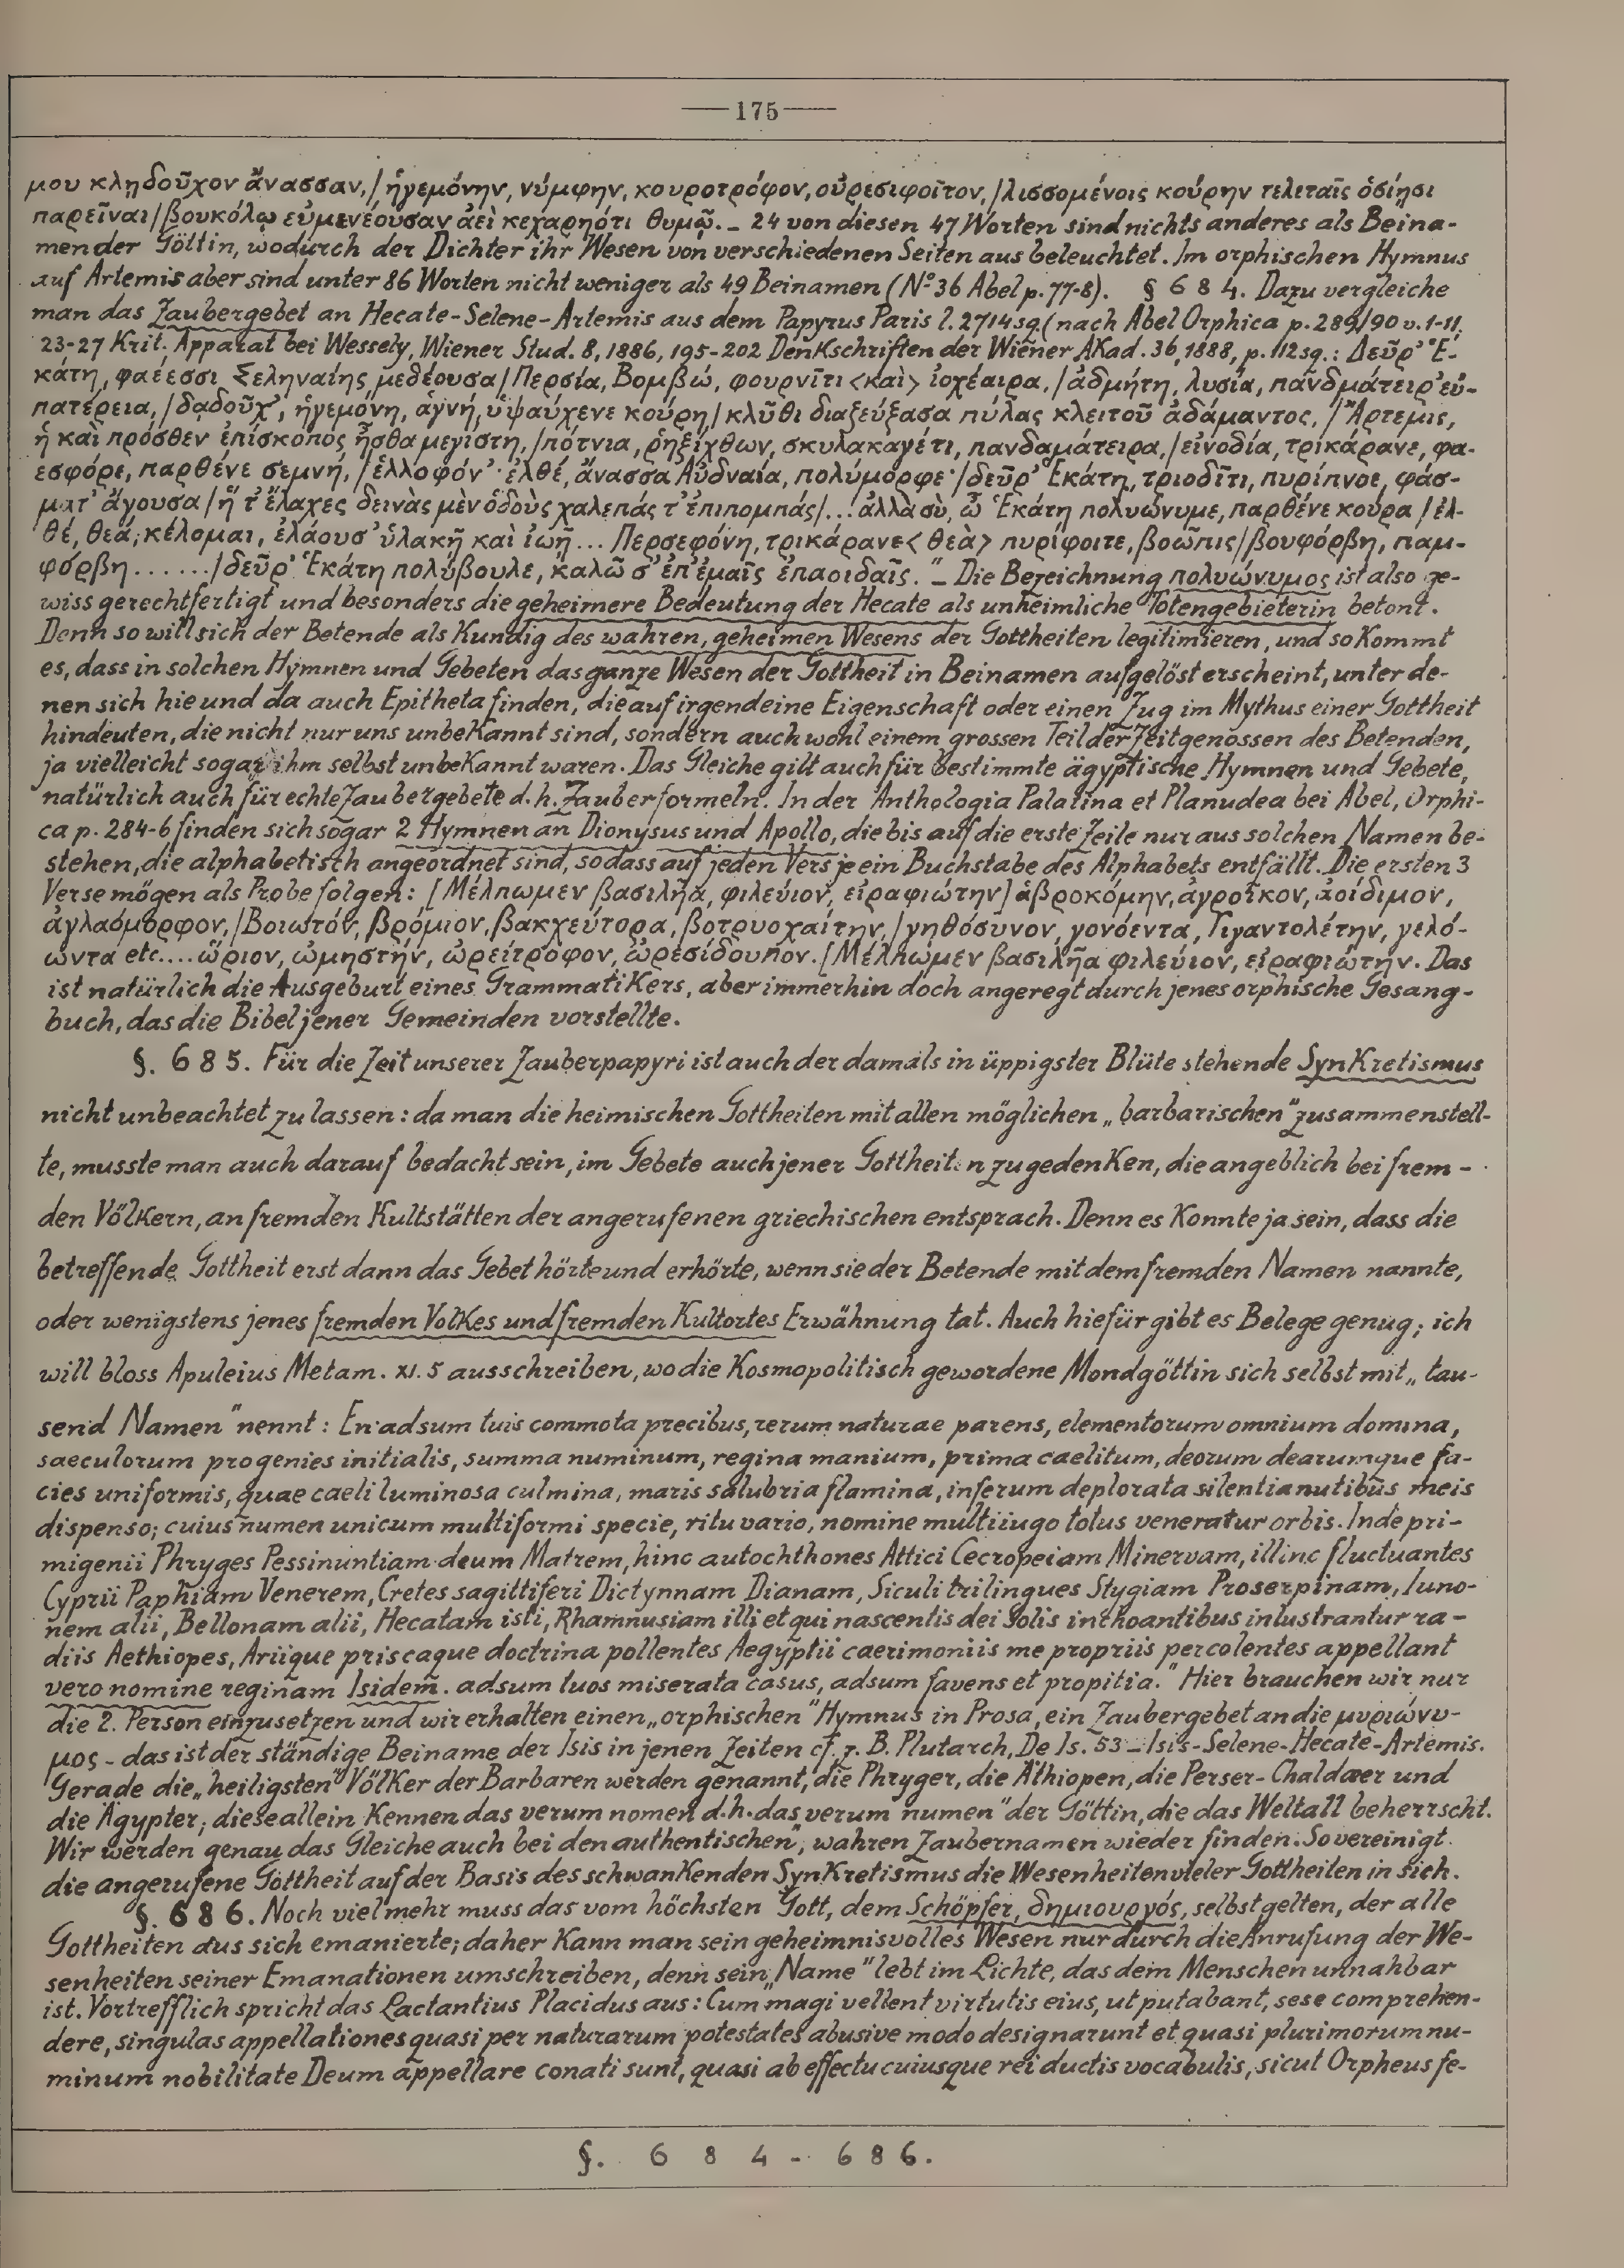 —175—
μου κλῃδοῦχον ἄνασσαν,/ἡγεμόνην, νύμφην, κουροτρόφον, οὐρεσιφοῖτον,/λισσομένοις κούρην τελεταῖς ὁσίῃσι
παρεῖναι/βουκόλῳ εὐμενέουσαν ἀεὶ κεχαρηότι θυμῷ._ 24 von diesen 47 Worten sind nichts anderes als Beina-
men der Göttin, wodurch der Dichter ihr Wesen von verschiedenen Seiten aus beleuchtet. Im orphischen Hymnus
auf Artemis aber sind unter 86 Worten nicht weniger als 49 Beinamen (Nº 36 Abel p. 77-8). § 684. Dazu vergleiche
man das Zaubergebet an Hecate-Selene-Artemis aus dem Papyrus Paris l. 2714 sq. (nach Abel Orphica p. 289/90 v. 1-11.
23-27 Krit. Apparat bei Wessely, Wiener Stud. 8, 1886, 195-202 Denkschriften der Wiener Akad. 36, 1888, p. 112 sq.: Δεῦρ' Ἑ-
κάτη, φαέεσσι Σεληναίης μεδέουσα/Περσία, Βομβώ, φουρνῖτι <καὶ> ἰοχέαιρα,/ἀδμήτη, λυσία, πανδμάτειρ' εὐ-
πατέρεια,/δᾳδοῦχ', ἡγεμόνη, ἁγνή, ὑψαύχενε κούρη/κλῦθι διαξεύξασα πύλας κλειτοῦ ἀδάμαντος,/Ἄρτεμις,
ἣ καὶ πρόσθεν ἐπίσκοπος ἦσθα μεγίστη,/πότνια, ῥηξίχθων, σκυλακαγέτι, πανδαμάτειρα,/εἰνοδία, τρικάρανε, φα-
εσφόρε, παρθένε σεμνή,/ἑλλοφόν'· ἐλθέ, ἄνασσα Αὐδναία, πολύμορφε·/δεῦρ' Ἑκάτη, τριοδῖτι, πυρίπνοε, φάσ-
ματ' ἄγουσα/ἥ τ' ἔλαχες δεινὰς μὲν ὁδοὺς χαλεπάς τ' ἐπιπομπάς/... ἀλλὰ σὺ, ὦ Ἑκάτη πολυώνυμε, παρθένε κούρα/ἐλ-
θέ, θεά, κέλομαι, ἐλάουσ' ὑλακῇ καὶ ἰωῇ... Περσεφόνη, τρικάρανε <θεὰ> πυρίφοιτε, βοῶπις/βουφόρβη, παμ-
φόρβη....../δεῦρ' Ἑκάτη πολύβουλε, καλῶ σ' ἐπ' ἐμαῖς ἐπαοιδαῖς."_ Die Bezeichnung πολυώνυμος ist also ge-
wiss gerechtfertigt und besonders die geheimere Bedeutung der Hecate als unheimliche Totengebieterin betont.
Denn so will sich der Betende als Kundig des wahren, geheimen Wesens der Gottheiten legitimieren, und so kommt
es, dass in solchen Hymnen und Gebeten das ganze Wesen der Gottheit in Beinamen aufgelöst erscheint, unter de-
nen sich hie und da auch Epitheta finden, die auf irgendeine Eigenschaft oder einen Zug im Mythus einer Gottheit
hindeuten, die nicht nur uns unbekannt sind, sondern auch wohl einem grossen Teil der Zeitgenossen des Betenden,
ja vielleicht sogar ihm selbst unbekannt waren. Das Gleiche gilt auch für bestimmte ägyptische Hymnen und Gebete,
natürlich auch für echte Zaubergebete d. h. Zauberformeln. In der Anthologia Palatina et Planudea bei Abel, Orphi-
ca p. 284-6 finden sich sogar 2 Hymnen an Dionysus und Apollo, die bis auf die erste Zeile nur aus solchen Namen be-
stehen, die alphabetisch angeordnet sind, sodass auf jeden Vers je ein Buchstabe des Alphabets entfällt. Die ersten 3
Verse mögen als Probe folgen: [Μέλπωμεν βασιλῆα, φιλεύιον, εἰραφιώτην] ἁβροκόμην, ἀγροῖκον, ἀοίδιμον,
ἀγλαόμορφον,/Βοιωτόν, βρόμιον, βακχεύτορα, βοτρυοχαίτην,/γηθόσυνον, γονόεντα, Γιγαντολέτην, γελό-
ωντα etc.... ὥριον, ὠμηστήν, ὠρείτροφον, ὠρεσίδουπον. [Μέλπωμεν βασιλῆα φιλεύιον, εἰραφιώτην. Das
ist natürlich die Ausgeburt eines Grammatikers, aber immerhin doch angeregt durch jenes orphische Gesang-
buch, das die Bibel jener Gemeinden vorstellte.
§. 685. Für die Zeit unserer Zauberpapyri ist auch der damals in üppigster Blüte stehende Synkretismus
nicht unbeachtet zu lassen: da man die heimischen Gottheiten mit allen möglichen „barbarischen" zusammenstell-
te, musste man auch darauf bedacht sein, im Gebete auch jener Gottheiten zu gedenken, die angeblich bei frem-
den Völkern, an fremden Kultstätten der angerufenen griechischen entsprach. Denn es konnte ja sein, dass die
betreffende Gottheit erst dann das Gebet hörte und erhörte, wenn sie der Betende mit dem fremden Namen nannte,
oder wenigstens jenes fremden Volkes und fremden Kultortes Erwähnung tat. Auch hiefür gibt es Belege genug; ich
will bloss Apuleius Metam. XI. 5 ausschreiben, wo die kosmopolitisch gewordene Mondgöttin sich selbst mit „tau-
send Namen" nennt: En adsum tuis commota precibus, rerum naturae parens, elementorum omnium domina,
saeculorum progenies initialis, summa numinum, regina manium, prima caelitum, deorum dearumque fa-
cies uniformis, quae caeli luminosa culmina, maris salubria flamina, inferum deplorata silentia nutibus meis
dispenso; cuius numen unicum multiformi specie, ritu vario, nomine multiiugo totus veneratur orbis. Inde pri-
migenii Phryges Pessinuntiam deum Matrem, hinc autochthones Attici Cecropeiam Minervam, illinc fluctuantes
Cyprii Paphiam Venerem, Cretes sagittiferi Dictynnam Dianam, Siculi trilingues Stygiam Proserpinam, Iuno-
nem alii, Bellonam alii, Hecatam isti, Rhamnusiam illi et qui nascentis dei Solis inchoantibus inlustrantur ra-
diis Aethiopes, Ariique priscaque doctrina pollentes Aegyptii caerimoniis me propriis percolentes appellant
vero nomine reginam Isidem. adsum tuos miserata casus, adsum favens et propitia." Hier brauchen wir nur
die 2. Person einzusetzen und wir erhalten einen „orphischen" Hymnus in Prosa, ein Zaubergebet an die μυριώνυ-
μος - das ist der ständige Beiname der Isis in jenen Zeiten cf. z. B. Plutarch, De Is. 53 _ Isis-Selene-Hecate-Artemis.
Gerade die „heiligsten" Völker der Barbaren werden genannt, die Phryger, die Äthiopen, die Perser-Chaldaer und
die Ägypter; diese allein kennen das verum nomen d. h. das „verum numen" der Göttin, die das Weltall beherrscht.
Wir werden genau das Gleiche auch bei den authentischen", wahren Zaubernamen wieder finden. So vereinigt
die angerufene Gottheit auf der Basis des schwankenden Synkretismus die Wesenheiten vieler Gottheiten in sich.
§. 686. Noch viel mehr muss das vom höchsten Gott, dem Schöpfer, δημιουργός, selbst gelten, der alle
Gottheiten aus sich emanierte; daher kann man sein geheimnisvolles Wesen nur durch die Anrufung der We-
senheiten seiner Emanationen umschreiben, denn sein „Name" lebt im Lichte, das dem Menschen unnahbar
ist. Vortrefflich spricht das Lactantius Placidus aus: Cum magi vellent virtutis eius, ut putabant, sese comprehen-
dere, singulas appellationes quasi per naturarum potestates abusive modo designarunt et quasi plurimorum nu-
minum nobilitate Deum appellare conati sunt, quasi ab effectu cuiusque rei ductis vocabulis, sicut Orpheus fe-
§. 684-686.